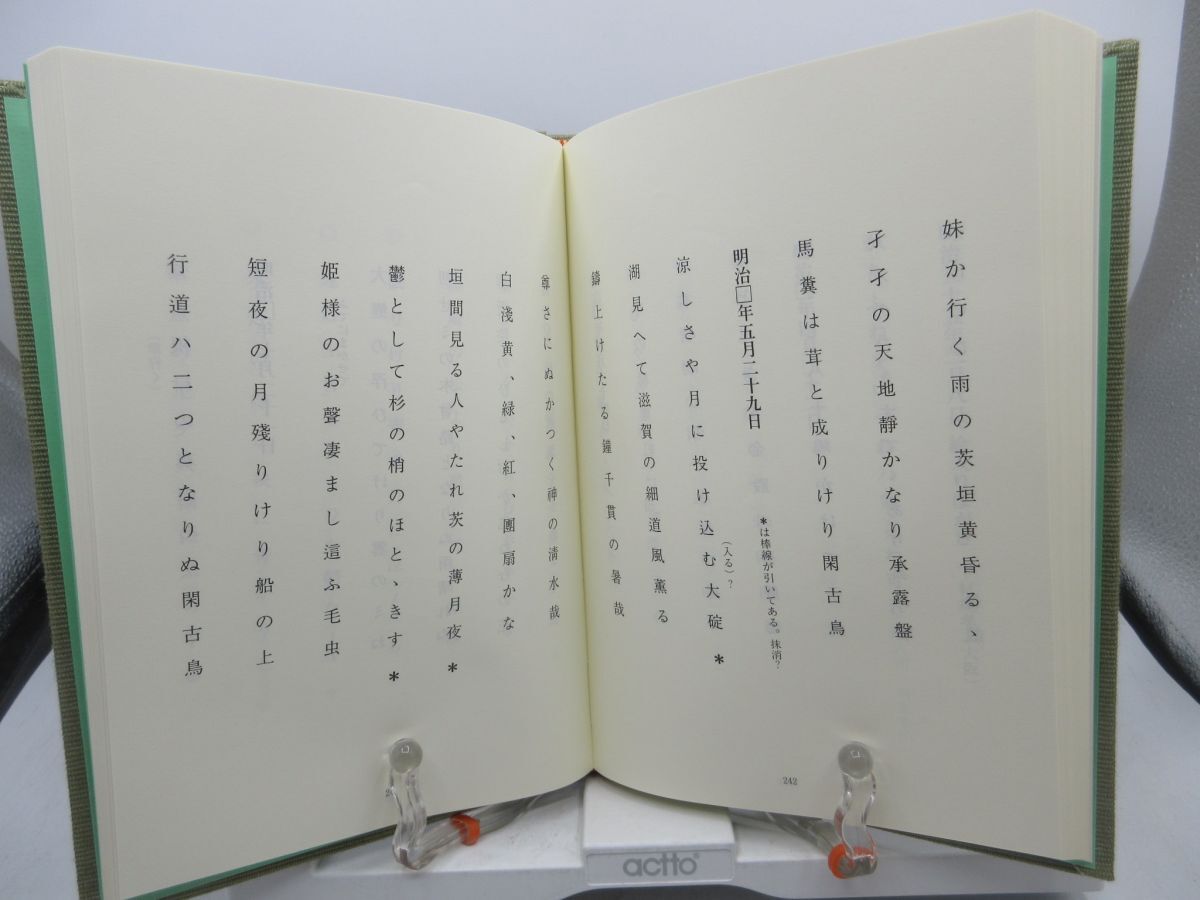 妹か行く雨の茨垣黄昏る、
孑孑の天地靜かなり承露盤
馬糞は茸と成りけり閑古鳥
明治□年五月二十九日
＊は棒線が引いてある。抹消？
(入る)？
涼しさや月に投け込む大碇＊
湖見へて滋賀の細道風薫る
鑄上けたる鐘千貫の暑哉
242
尊さにぬかつく神の淸水哉
白淺黄、緑、紅、團扇かな
垣間見る人やたれ茨の薄月夜＊
鬱として杉の梢のほとゝきす＊
姫様のお聲凄まし這ふ毛虫
短夜の月殘りけり船の上
行道ハ二つとなりぬ閑古鳥
actto